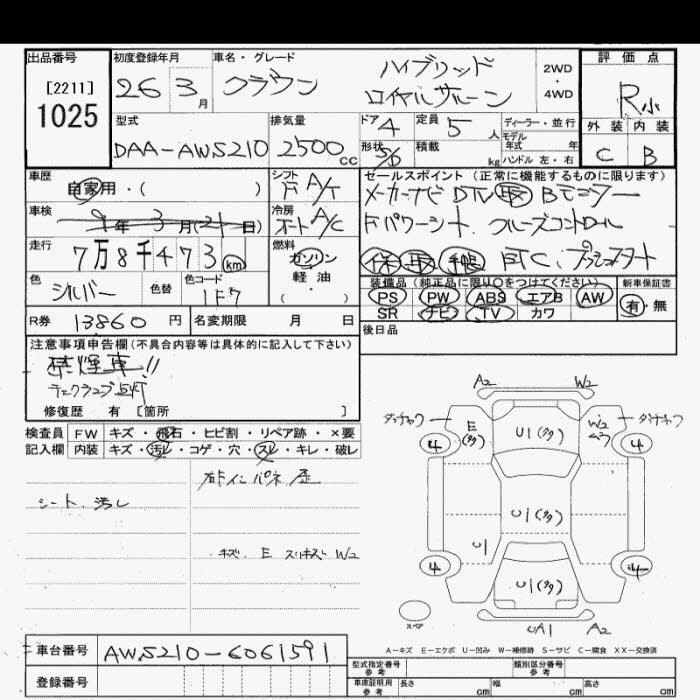 出品番号
[2211]
1025
初度登録年月
26 3月
車名・グレード
クラウン
ハイブリッド
ロイヤルサルーン
2WD
・
4WD
評価点
R小
外装 内装
C B
型式
DAA-AWS210
排気量
2500cc
ドア
4
定員
5人
形状
5/D
積載
kg
ディーラー・並行
モデル
年式 年
ハンドル 左・右
車歴
自家用・( )
シフト
F A/T
車検
9年3月(21日)
冷房
オート A/C
走行
7万8千473km
燃料
ガソリン
軽油
・
( )
色
シルバー
色替
色コード
1F7
セールスポイント (正常に機能するものに限ります)
メーカーナビ DTV 取 Bモニター
Fパワーシート クルーズコントロール
保 取 手帳 ETC、プッシュスタート
装備品(純正品に限り○をつけてください)
PS PW ABS エアB AW
SR ナビ TV カワ
新車保証書
有・無
後日品
R券 13860円
名変期限 月 日
注意事項申告欄(不具合内容等は具体的に記入して下さい)
禁煙車!!
チェックランプ点灯
修復歴 有 [箇所 ]
検査員
記入欄
FW キズ・飛石・ヒビ割・リペア跡・×要
内装 キズ・汚れ・コゲ・穴・スレ・キレ・破レ
シート 汚し
キズ、E スリキズ W2
A2 W2
E(多)
U1(多)
W2
4 4
U1(多)
U1
4 4
U1(多)
スペア
UA1 A2
A-キズ E-エクボ U-凹み W-補修跡 S-サビ C-腐食 XX-交換済
車台番号 AWS210-6061591
登録番号
型式指定番号
参考
類別区分番号
参考
車庫証明用
参考
長さ cm 幅 cm 高さ cm